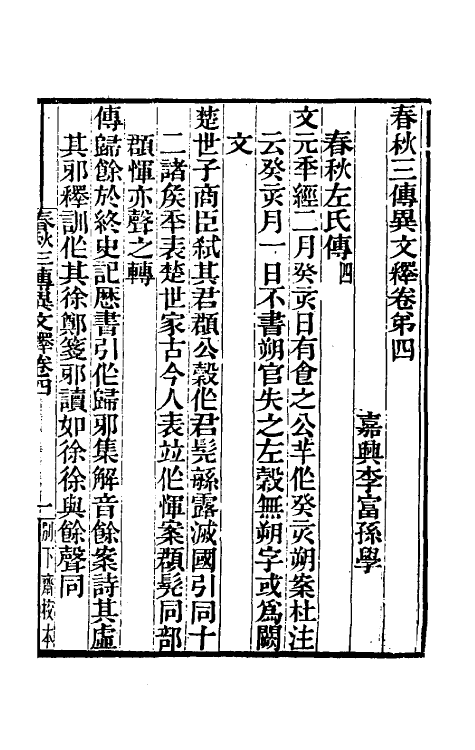 春秋三傳異文釋卷弟四
嘉興李富孫學
春秋左氏傳四
文元年經二月癸亥日有食之公羊作癸亥朔案杜注
云癸亥月一日不書朔官失之左穀無朔字或爲闕
文
楚世子商臣弑其君頵公穀作君髡繇露滅國引同十
二諸矦年表楚世家古今人表竝作惲案頵髡同部
頵惲亦聲之轉
傳歸餘於終史記厯書引作歸邪集解音餘案詩其虛
其邪釋訓作其徐鄭箋邪讀如徐徐與餘聲同
春秋三傳異文釋卷四
一
別下齋校本